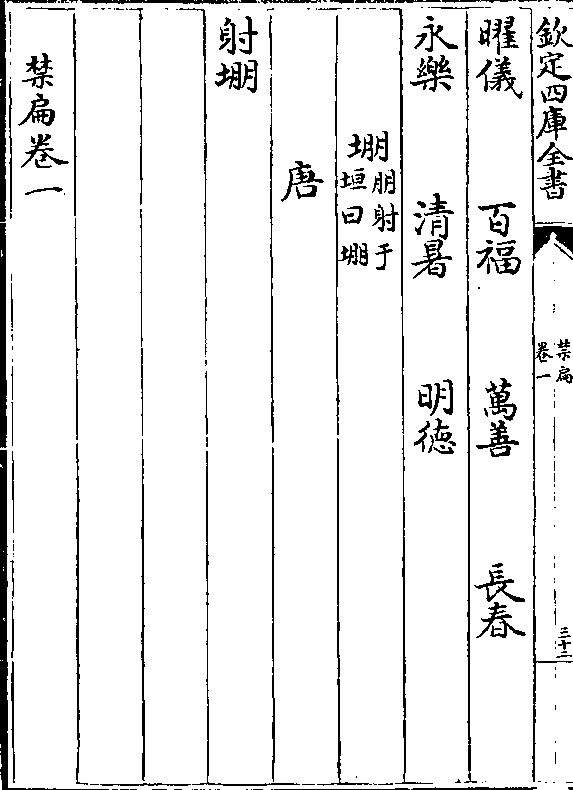 欽定四庫全書
禁扁
卷一
三十二
曜儀 百福 萬善 長春
永樂 清暑 明德
堋朋射于
垣曰堋
唐
射堋
禁扁卷一